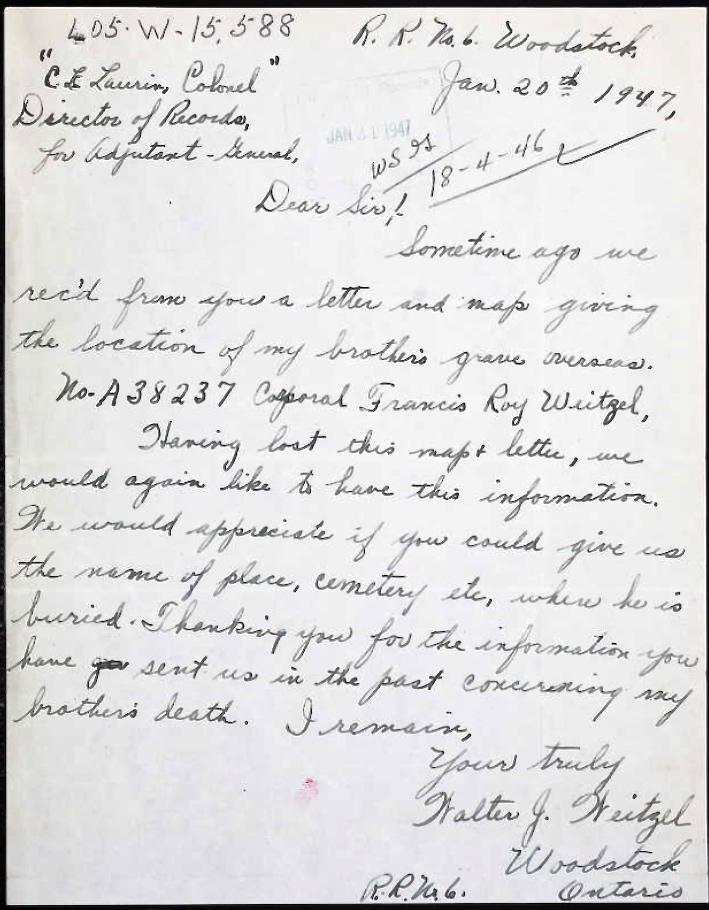 405-W-15,588
R. R. No. 6. Woodstock,
Jan. 20th 1947,
"C.L. Laurin, Colonel"
Director of Records,
for Adjutant-General,
JAN 21 1947
WS 9s
18-4-46
Dear Sir!
Sometime ago we
rec'd from you a letter and map giving
the location of my brother's grave overseas.
No-A38237 Corporal Francis Roy Weitzel,
Having lost this map + letter, we
would again like to have this information.
We would appreciate if you could give us
the name of place, cemetery etc, where he is
buried. Thanking you for the information you
have sent us in the past concerning my
brother's death. I remain,
Your truly
Walter J. Weitzel
Woodstock
R.R. No. 6. Ontario